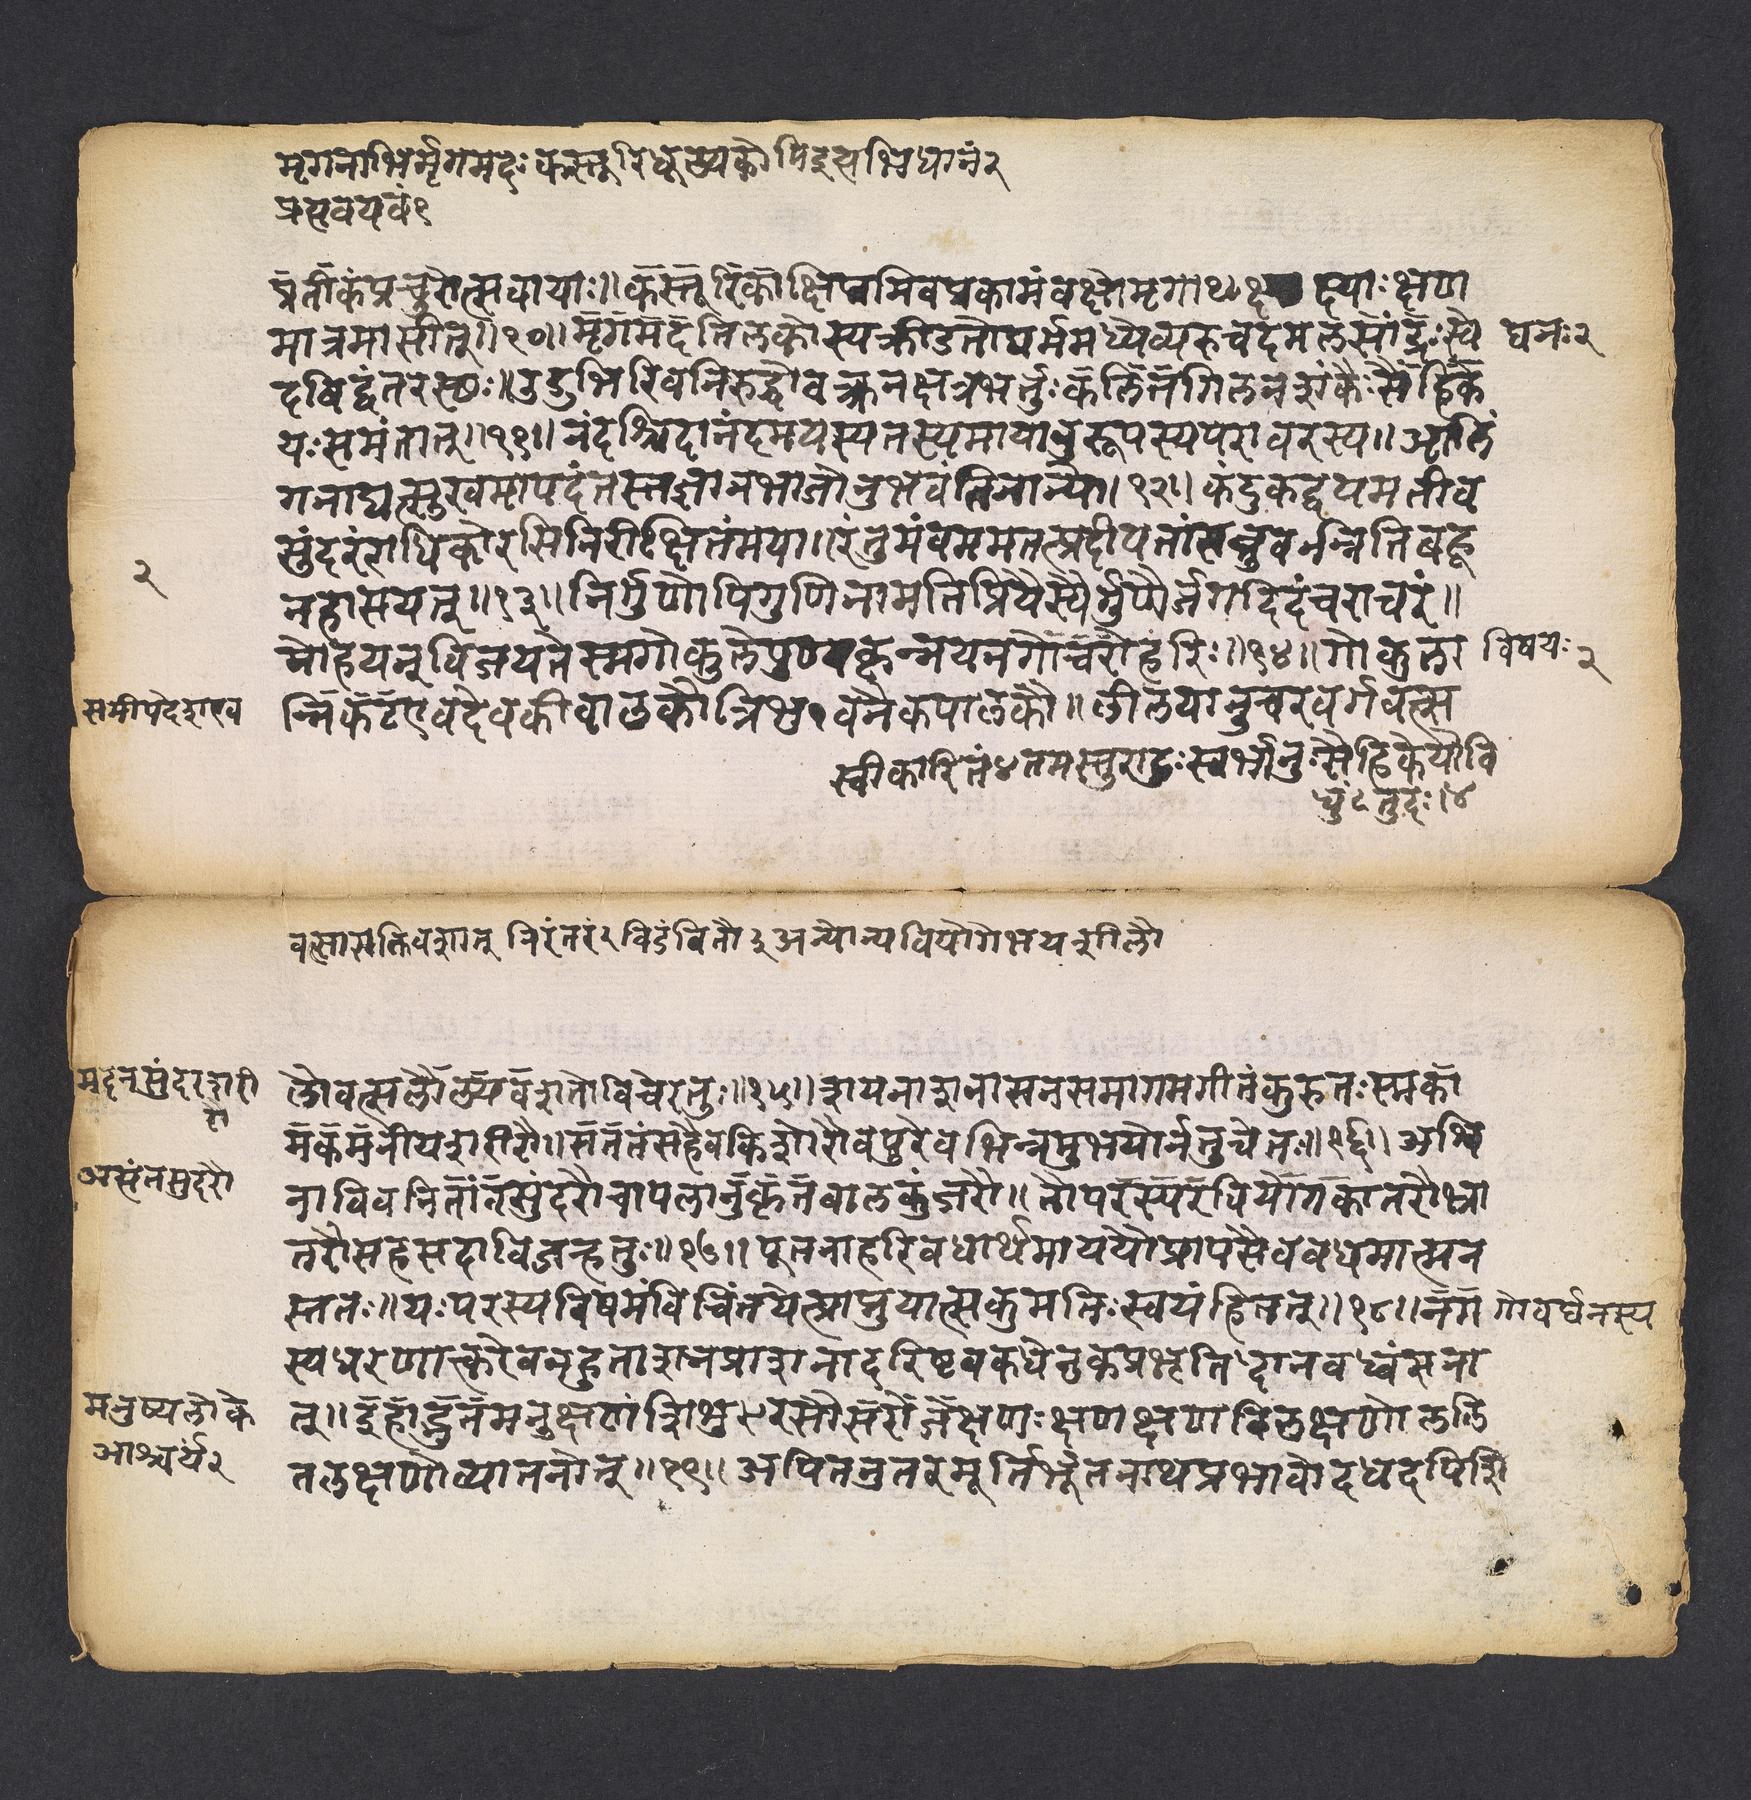 मृगनाभिर्मृगमदः कस्तूरि
प्रसवयवं१
प्रतीकंप्रचुरोत्सवायाः॥कस्तूरिकाक्षिप्तमिवप्रकामंवक्षोमृगा क्ष्याःक्षण
मात्रमासीत्॥१०॥मृगमदतिलकोस्यक्रीडतोघर्ममध्येव्यरुचदमलसांद्रःस्वे
दबिद्वंतरेस्थः॥उडुभिरिवनिरुद्धोवक्त्रनक्षत्रभर्तुःकलितगिलनशंकैःसैंहिके
यःसमंतात्॥११॥नंदश्चिदानंदमयस्यतस्यमायानुरूपस्यपरावरस्य॥आलिं
गनाद्यत्सुखमापदंतस्तज्ञानभाजोनुभवंतिनान्ये।१२॥कंदुकद्वयमतीव
सुंदरंराधिकोरसिनिरीक्षितंमया॥रंतुमंवममतत्प्रदीयतांसब्रुवन्नितिबहू
नहासयत्॥१३॥निर्गुणोपिगुणिनामतिप्रियैस्वैर्गुणैर्जगदिदंचराचरं॥
मोहयन्विजयतेस्मगोकुलेपुण्यकृन्नयनगोचरोहरिः॥१४॥गोकुला
न्निकटएवदेवकीबालकौत्रिभुवनैकपालकौ॥लीलयानुचरवर्गवत्स
घनः२
२
विषयः२
समीपदेशएव
स्वीकारितं४तमस्तुराहुःस्वर्भानुःसैंहिकेयोवि
धुंतुदः।४
वत्सासक्तिवशात् निरंतरं२विडंबितौ३अन्योन्यवियोगेभयशीलौ
मदनसुंदरशरी
रौ
लौवत्सलौल्यवशतोविचेरतुः॥१५॥शयनाशनासनसमागमगीतंकुरुतःस्मका
मकमनीयशरीरौ॥सततंसहैवकिशोरौवपुरेवभिन्नमुभयोर्नतुचेतः॥१६॥अश्वि
नाविवनितांतसुंदरौचापलानुकृतबालकुंजरौ॥तौपरस्परवियोगकातरौभ्रा
तरौसहसदाविजन्हतुः॥१७॥पूतनाहरिवधार्थमाययौप्रापसैववधमात्मन
स्ततः॥यःपरस्यविषमंविचिंतयेत्प्राप्नुयात्सकुमतिःस्वयंहितत्॥१८॥नग
स्यधरणात्करेवनहुताशनप्राशनादरिष्टबकधेनुकप्रभृतिदानवध्वंसना
त्॥इहाद्भुतमनुक्षणंशिशुरसौसरोजेक्षणःक्षणक्षणविलक्षणोललि
तलक्षणोव्यातनोत्॥१९॥अपिततुतरमूर्तिर्भूतनाथप्रभावोदधदपिशि
अत्यंतसुंदरौ
गोवर्धनस्य
मनुष्यलोके
आश्चर्यं२